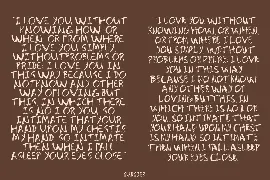 "I LOVE YOU WITHOUT
KNOWING HOW, OR
WHEN, OR FROM WHERE.
I LOVE YOU SIMPLY,
WITHOUT PROBLEMS OR
PRIDE: I LOVE YOU IN
THIS WAY BECAUSE I DO
NOT KNOW ANY OTHER
WAY OF LOVING BUT
THIS, IN WHICH THERE
IS NO I OR YOU, SO
INTIMATE THAT YOUR
HAND UPON MY CHEST IS
MY HAND, SO INTIMATE
THEN WHEN I FALL
ASLEEP YOUR EYES CLOSE"
I LOVE YOU WITHOUT
KNOWING HOW, OR WHEN,
OR FROM WHERE. I LOVE
YOU SIMPLY, WITHOUT
PROBLEMS OR PRIDE: I LOVE
YOU IN THIS WAY
BECAUSE I DO NOT KNOW
ANY OTHER WAY OF
LOVING BUT THIS, IN
WHICH THERE IS NO I OR
YOU, SO INTIMATE THAT
YOUR HAND UPON MY CHEST
IS MY HAND, SO INTIMATE
THEN WHEN I FALL ASLEEP
YOUR EYES CLOSE.